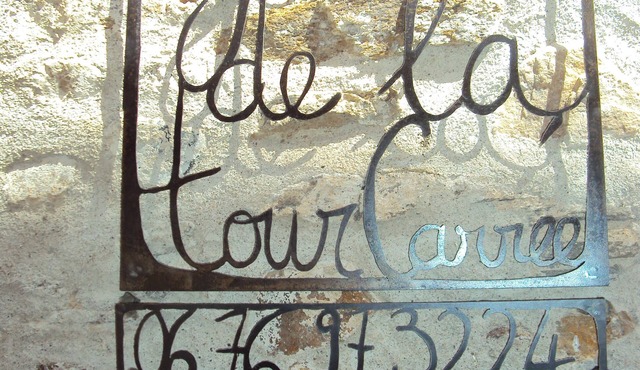 de la
tour Carree
06 76 97 32 24